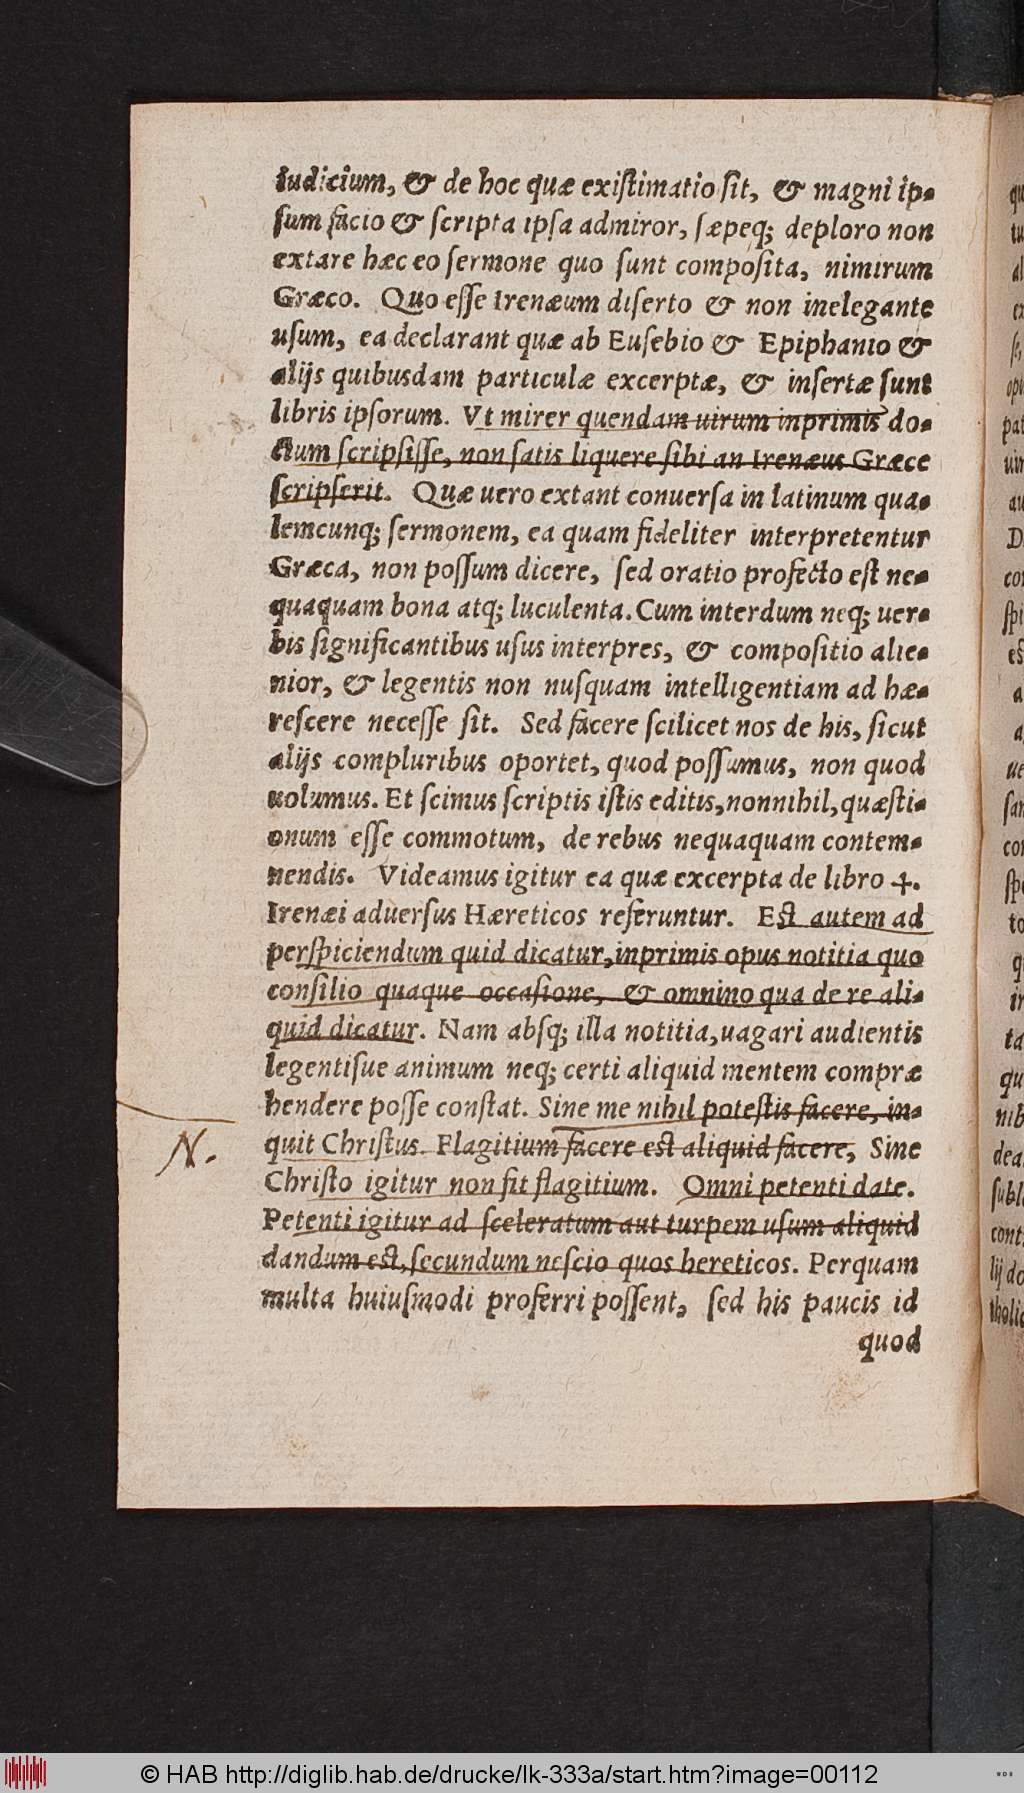 iudicium, & de hoc quæ existimatio sit, & magni ip-
sum facio & scripta ipsa admiror, sæpeq; deploro non
extare hæc eo sermone quo sunt composita, nimirum
Græco. Quo esse Irenæum diserto & non inelegante
usum, ea declarant quæ ab Eusebio & Epiphanio &
alijs quibusdam particulæ excerptæ, & insertæ sunt
libris ipsorum. Vt mirer quendam uirum inprimis do-
ctum scripsisse, non satis liquere sibi an Irenæus Græce
scripserit. Quæ uero extant conuersa in latinum qua-
lemcunq; sermonem, ea quam fideliter interpretentur
Græca, non possum dicere, sed oratio profecto est ne-
quaquam bona atq; luculenta. Cum interdum neq; uer-
bis significantibus usus interpres, & compositio alie-
nior, & legentis non nusquam intelligentiam ad hæ-
rescere necesse sit. Sed facere scilicet nos de his, sicut
alijs compluribus oportet, quod possumus, non quod
uolumus. Et scimus scriptis istis editis, nonnihil, quæsti-
onum esse commotum, de rebus nequaquam contem-
nendis. Videamus igitur ea quæ excerpta de libro 4.
Irenæi aduersus Hæreticos referuntur. Est autem ad
perspiciendum quid dicatur, inprimis opus notitia quo
consilio quaque occasione, & omnino qua de re ali-
quid dicatur. Nam absq; illa notitia, uagari audientis
legentisue animum neq; certi aliquid mentem compræ
hendere posse constat. Sine me nihil potestis facere, in-
quit Christus. Flagitium facere est aliquid facere, Sine
N.
Christo igitur non fit flagitium. Omni petenti date.
Petenti igitur ad sceleratum aut turpem usum aliquid
dandum est, secundum nescio quos hereticos. Perquam
multa huiusmodi proferri possent, sed his paucis id
quod
© HAB http://diglib.hab.de/drucke/lk-333a/start.htm?image=00112